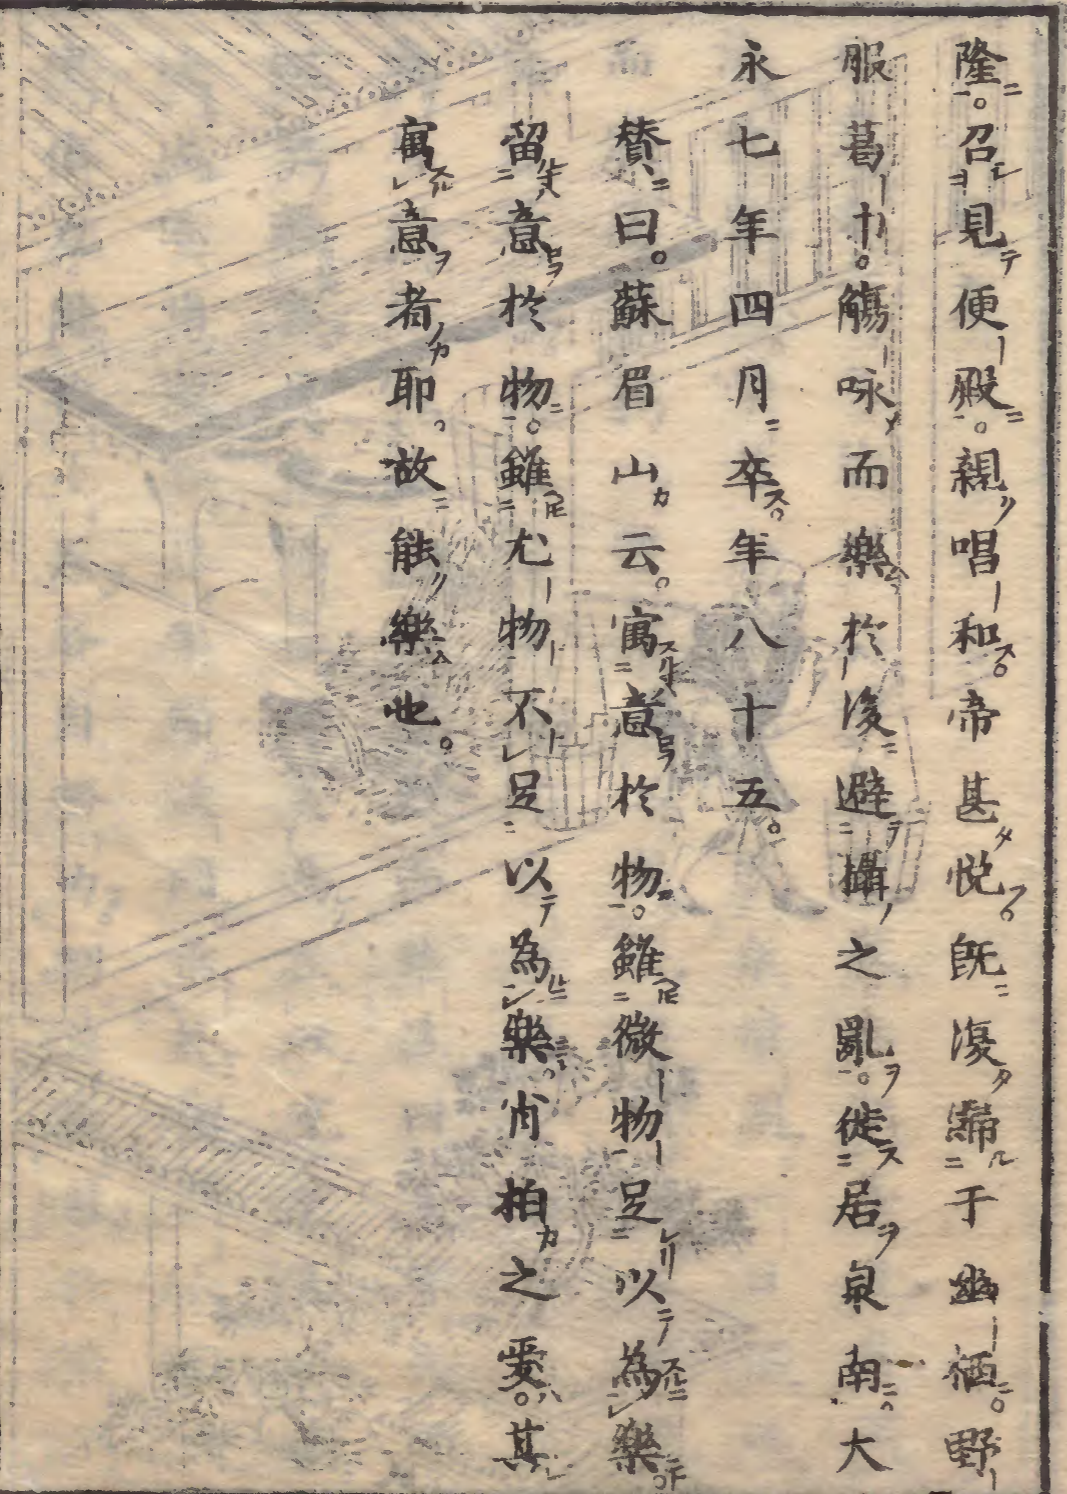 隆。召見便殿。親唱和。帝甚悦。既復歸于幽栖。野
服葛巾。觴咏而樂於後避攝之亂。徙居泉南。大
永七年四月卒。年八十五。
賛曰。蘇眉山云。寓意於物。雖微物足以為樂。
留意於物。雖尤物不足以為樂。肖柏之愛。其
寓意者耶。故能樂也。